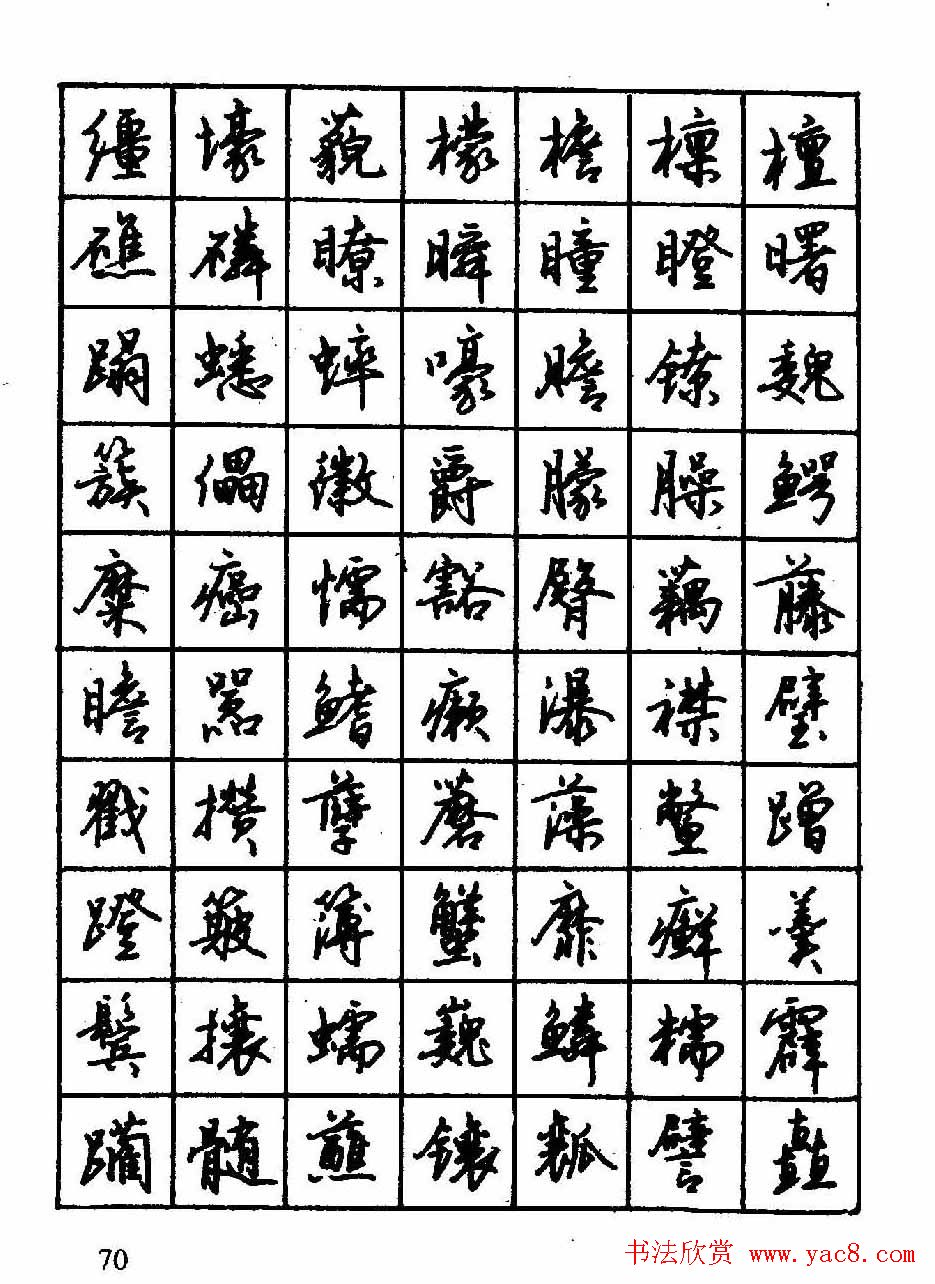 缰壕藐檬檐檩檀
礁磷瞭瞬瞳瞪曙
蹋蟋蟀嚎赡镣魏
簇儡徽爵朦臊鳄
糜癌懦豁臀藕藤
瞻嚣鳍癞瀑襟璧
戳攒孽蘑藻鳖蹭
蹬簸簿蟹靡癣羹
鬓攘蠕巍鳞糯霹
躏髓蘸镶瓤譬矗
70
书法欣赏 www.yac8.com